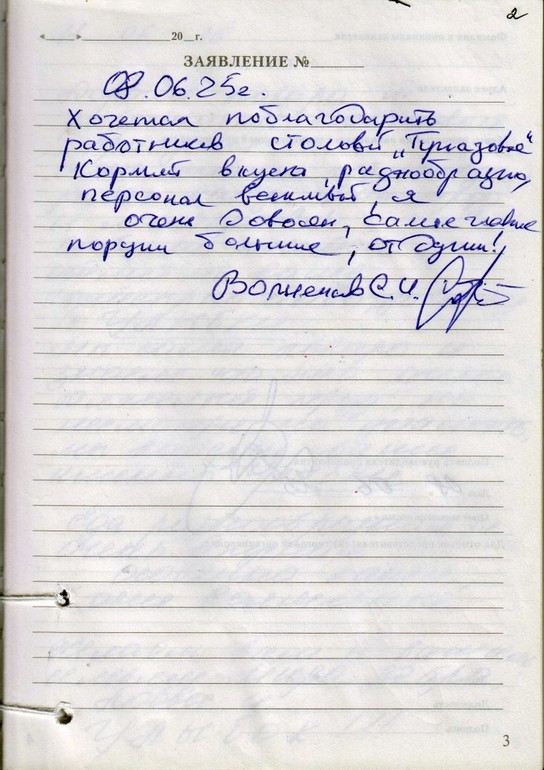 2
«___» ________ 20__г.
ЗАЯВЛЕНИЕ №______
08.06.25г.
Хочется поблагодарить
работников столовой
Кормят вкусно, разнообразно,
персонал вежливый, я
очень доволен, самые главные
порции большие, от души!
С.И.
3